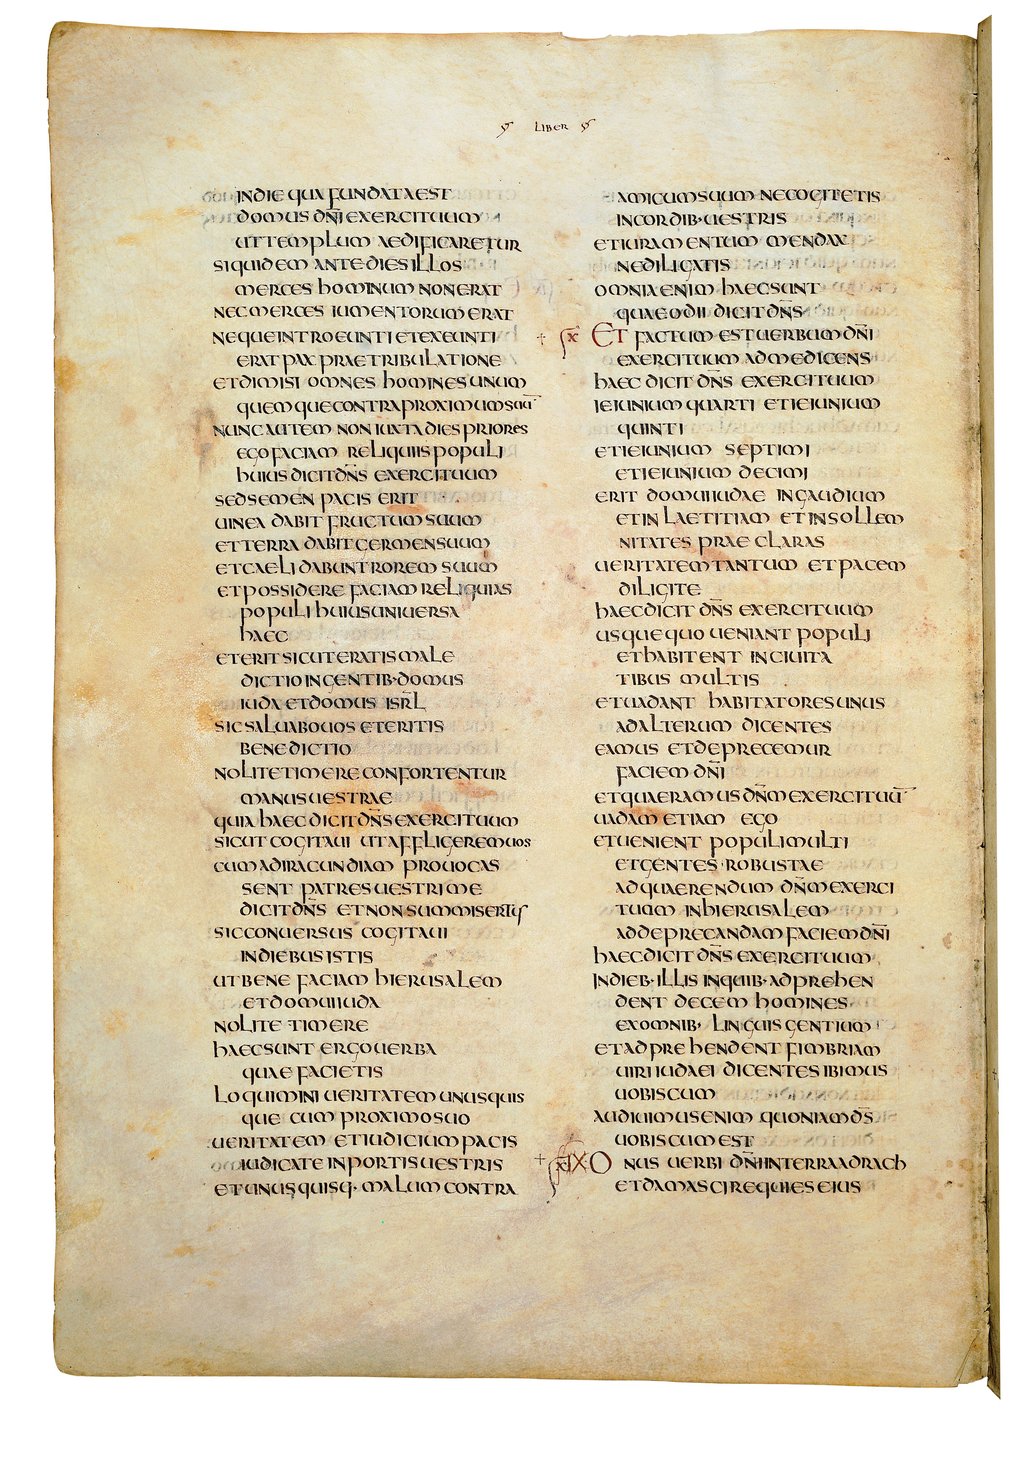 LIBER
INDIE QUA FUNDATA EST
DOMUS DN̄I EXERCITUUM
UT TEMPLUM AEDIFICARETUR
SIQUIDEM ANTE DIES ILLOS
MERCES HOMINUM NON ERAT
NEC MERCES IUMENTORUM ERAT
NEQUE INTROEUNTI ET EXEUNTI
ERAT PAX PRAE TRIBULATIONE
ET DIMISI OMNES HOMINES UNUM
QUEMQUE CONTRA PROXIMUM SUŪ
NUNC AUTEM NON IUXTA DIES PRIORES
EGO FACIAM RELIQUIIS POPULI
HUIUS DICIT DN̄S EXERCITUUM
SED SEMEN PACIS ERIT
UINEA DABIT FRUCTUM SUUM
ET TERRA DABIT GERMEN SUUM
ET CAELI DABUNT ROREM SUUM
ET POSSIDERE FACIAM RELIQUIAS
POPULI HUIUS UNIUERSA
HAEC
ET ERIT SICUT ERATIS MALE
DICTIO IN GENTIB· DOMUS
IUDA ET DOMUS ISRL̄
SIC SALUABO UOS ET ERITIS
BENEDICTIO
NOLITE TIMERE CONFORTENTUR
MANUS UESTRAE
QUIA HAEC DICIT DN̄S EXERCITUUM
SICUT COGITAUI UT AFFLIGEREM UOS
CUM AD IRACUNDIAM PROUOCAS
SENT PATRES UESTRI ME
DICIT DN̄S ET NON SUM MISERTUS
SIC CONUERSUS COGITAUI
IN DIEBUS ISTIS
UT BENEFACIAM HIERUSALEM
ET DOMUI IUDA
NOLITE TIMERE
HAEC SUNT ERGO UERBA
QUAE FACIETIS
LOQUIMINI UERITATEM UNUSQUIS
QUE CUM PROXIMO SUO
UERITATEM ET IUDICIUM PACIS
IUDICATE IN PORTIS UESTRIS
ET UNUSQUISQ· MALUM CONTRA
AMICUM SUUM NE COGITETIS
IN CORDIB· UESTRIS
ET IURAMENTUM MENDAX
NE DILIGATIS
OMNIA ENIM HAEC SUNT
QUAE ODI DICIT DN̄S
ET FACTUM EST UERBUM DN̄I
EXERCITUUM AD ME DICENS
HAEC DICIT DN̄S EXERCITUUM
IEIUNIUM QUARTI ET IEIUNIUM
QUINTI
ET IEIUNIUM SEPTIMI
ET IEIUNIUM DECIMI
ERIT DOMUI IUDAE IN GAUDIUM
ET IN LAETITIAM ET IN SOLLEM
NITATES PRAECLARAS
UERITATEM TANTUM ET PACEM
DILIGITE
HAEC DICIT DN̄S EXERCITUUM
USQUEQUO UENIANT POPULI
ET HABITENT IN CIUITA
TIBUS MULTIS
ET UADANT HABITATORES UNUS
AD ALTERUM DICENTES
EAMUS ET DEPRECEMUR
FACIEM DN̄I
ET QUAERAMUS DN̄M EXERCITUŪ
UADAM ETIAM EGO
ET UENIENT POPULI MULTI
ET GENTES ROBUSTAE
AD QUAERENDUM DN̄M EXERCI
TUUM IN HIERUSALEM
AD DEPRECANDAM FACIEM DN̄I
HAEC DICIT DN̄S EXERCITUUM
IN DIEB· ILLIS IN QUIB· ADPREHEN
DENT DECEM HOMINES
EX OMNIB· LINGUIS GENTIUM
ET ADPREHENDENT FIMBRIAM
UIRI IUDAEI DICENTES IBIMUS
UOBISCUM
AUDIUIMUS ENIM QUONIAM DS̄
UOBISCUM EST
IX· ONUS UERBI DN̄I IN TERRA ADRACH
ET DAMASCI REQUIES EIUS